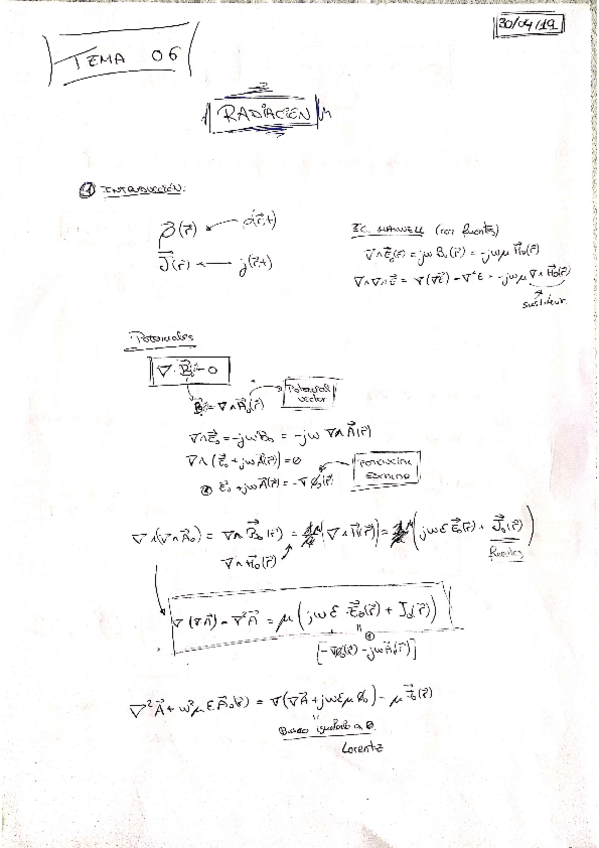 30/04/19
TEMA 06
RADIACIÓN
① INTRODUCCIÓN:
ρ(r⃗) ← ρ(r⃗,t)
J⃗(r⃗) ← j(r⃗,t)
EC. MAXWELL (con fuentes)
∇∧E⃗₀(r⃗) = jω B₀(r⃗) = -jωμ H⃗₀(r⃗)
∇∧∇∧E⃗ = ∇(∇E⃗) - ∇²E = -jωμ ∇∧H₀(r⃗)
Potenciales
∇·B⃗₀ = 0
B⃗₀ = ∇∧A⃗₀(r⃗)
Potencial vector
∇∧E⃗₀ = -jωB⃗₀ = -jω ∇∧A⃗(r⃗)
∇∧(E⃗₀ + jωA⃗(r⃗)) = 0
E⃗₀ + jωA⃗(r⃗) = -∇φ₀(r⃗)
Potencial
∇∧(∇∧A⃗₀) = ∇∧B⃗₀(r⃗) = [∇∧H⃗(r⃗)] = (jωε E⃗₀(r⃗) + J⃗₀(r⃗))
∇∧H⃗₀(r⃗)
∇(∇A⃗) - ∇²A⃗ = μ(jωε·E⃗₀(r⃗) + J₀(r⃗))
[-∇φ₀(r⃗) - jωA⃗₀(r⃗)]
∇²A⃗ + ω²με A⃗₀(r⃗) = ∇(∇A⃗ + jωεμ φ₀) - μ J⃗₀(r⃗)
igualarlo a 0.
Lorentz